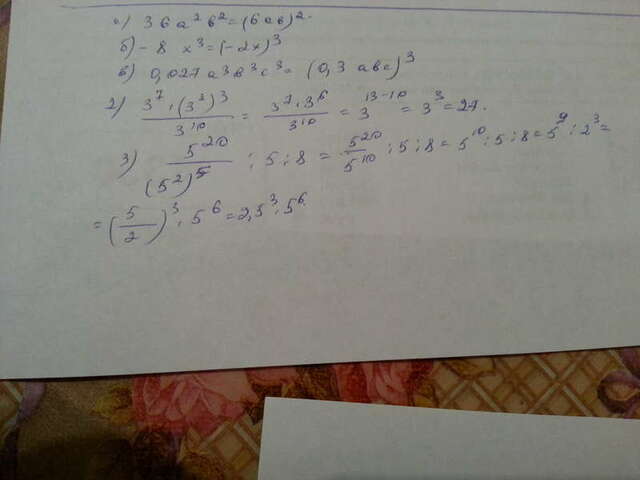 а) 36a²b² = (6ab)².
б) -8 x³ = (-2x)³
в) 0,027 a³b³c³ = (0,3 abc)³
2) 3⁷·(3²)³ / 3¹⁰ = 3⁷·3⁶ / 3¹⁰ = 3¹³⁻¹⁰ = 3³ = 27.
3) 5²⁰ / (5²)⁵ : 5 : 8 = 5²⁰ / 5¹⁰ : 5 : 8 = 5¹⁰ : 5 : 8 = 5⁹ : 2³ =
= (5/2)³ · 5⁶ = 2,5³ · 5⁶.